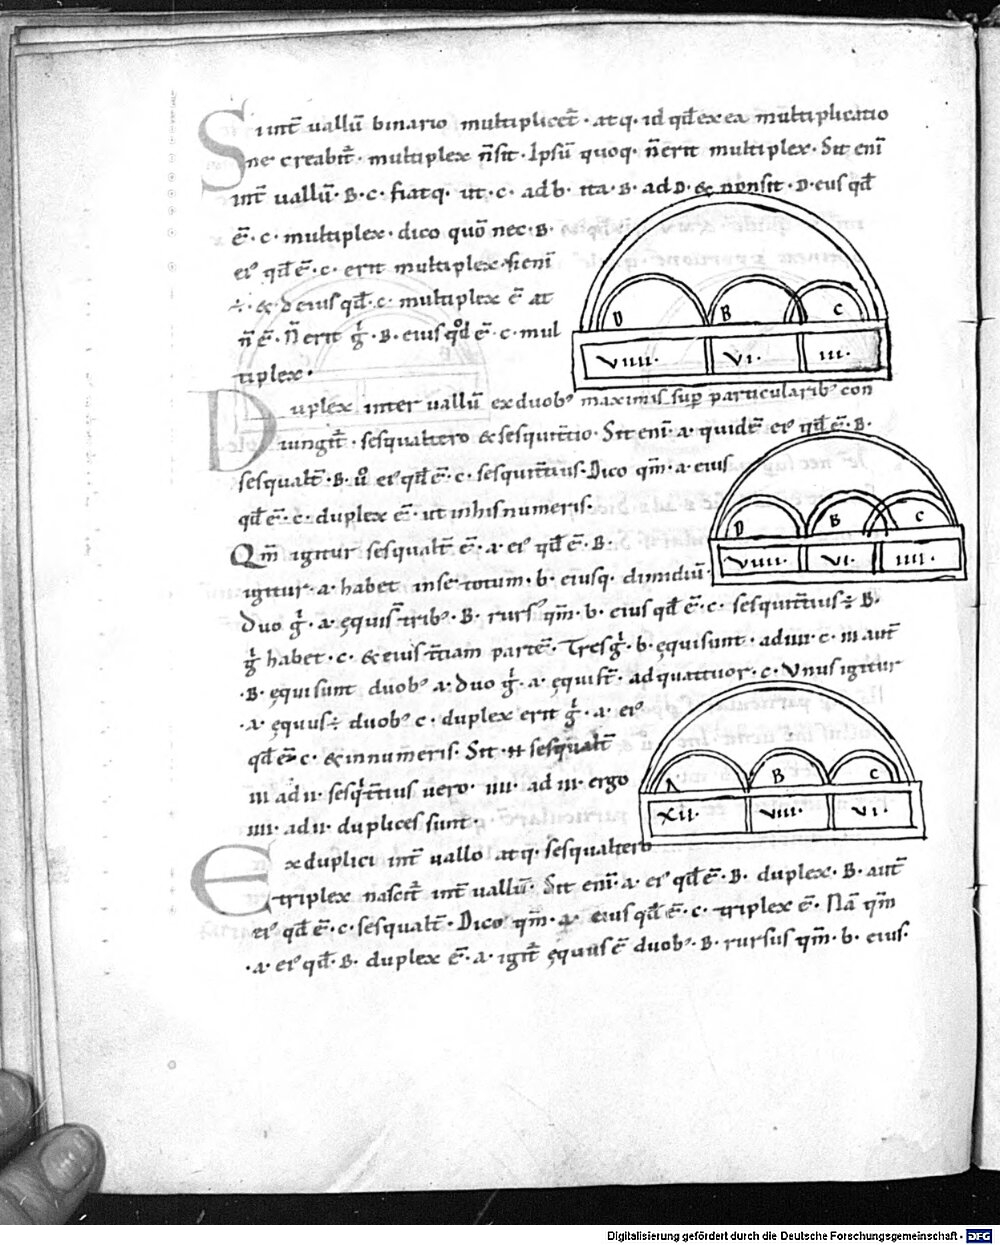 Si int̄ uallū binario multiplicet̄ · atq· id qđ ex ea mūltiplicatio
ne creabit̄ · multiplex n̄ sit · Ipsū quoq· n̄ erit multiplex · Sit eni
int̄ uallū · B · c · fiatq· ut · c · ad b · ita · B · ad D · & non sit · D · eius qđ
ē · c · multiplex · dico quō nec · B ·
ei' qđ ē · c · erit multiplex · si eni
÷ · & D eius qđ · c · multiplex ē at
n̄ ē · N̄ erit g̊ · B · eius qđ ē · c · mul
tiplex ·
D B C
VIIII · VI · III ·
Duplex inter uallū ex duob' maximis sup particularib' con
iungit̄ · sesqualtero & sesquitertio · Sit eni · a · quidē ei' qđ ē · B ·
sesqualt̄ · B · ů ei' qđ ē · c · sesquitt̄ius · Dico qm̄ · a · eius
qđ ē · c · duplex ē · ut in his numeris ·
D B C
VIIII · VI · IIII ·
Qm̄ igitur sesqualt̄ ē · a · ei' qđ ē · B ·
igitur · a · habet in se totum · b · eiusq· dimidiū ·
Duo g̊ · a · ęquis̄t trib' · B · rurs' qm̄ · b · eius qđ ē · c · sesquitt̄ius ÷ B ·
g̊ habet · c · & eius tt̄iam partē · Tres g̊ · b · ęqui sunt · ad IIII · c · III aut̄
· B · ęqui sunt duob' a · Duo g̊ · a · ęquist̄ · ad quattuor · c · Unus igitur
· a · ęquus ÷ duob' c · duplex erit g̊ · a · ei'
qđ ē c · & in num̄eris · Sit · sesqualt̄
III ad II · sesq̊tt̄ius uero · IIII · ad III · ergo
IIII · ad II · duplices sunt ·
A B C
XII · VIII · VI
Ex duplici int̄ uallo atq· sesqualtero
triplex nascit̄ int̄ uallū · Sit eni · a · ei' qđ ē · B · duplex · B · aut̄
ei' qđ ē · c · sesqualt̄ · Dico qm̄ · a · eius qđ ē · c · triplex ē · Nā qm̄
· a · ei' qđ · B · duplex ē · a · igit̄ ęquus ē duob' · B · rursus qm̄ · b · eius ·
Digitalisierung gefördert durch die Deutsche Forschungsgemeinschaft - DFG